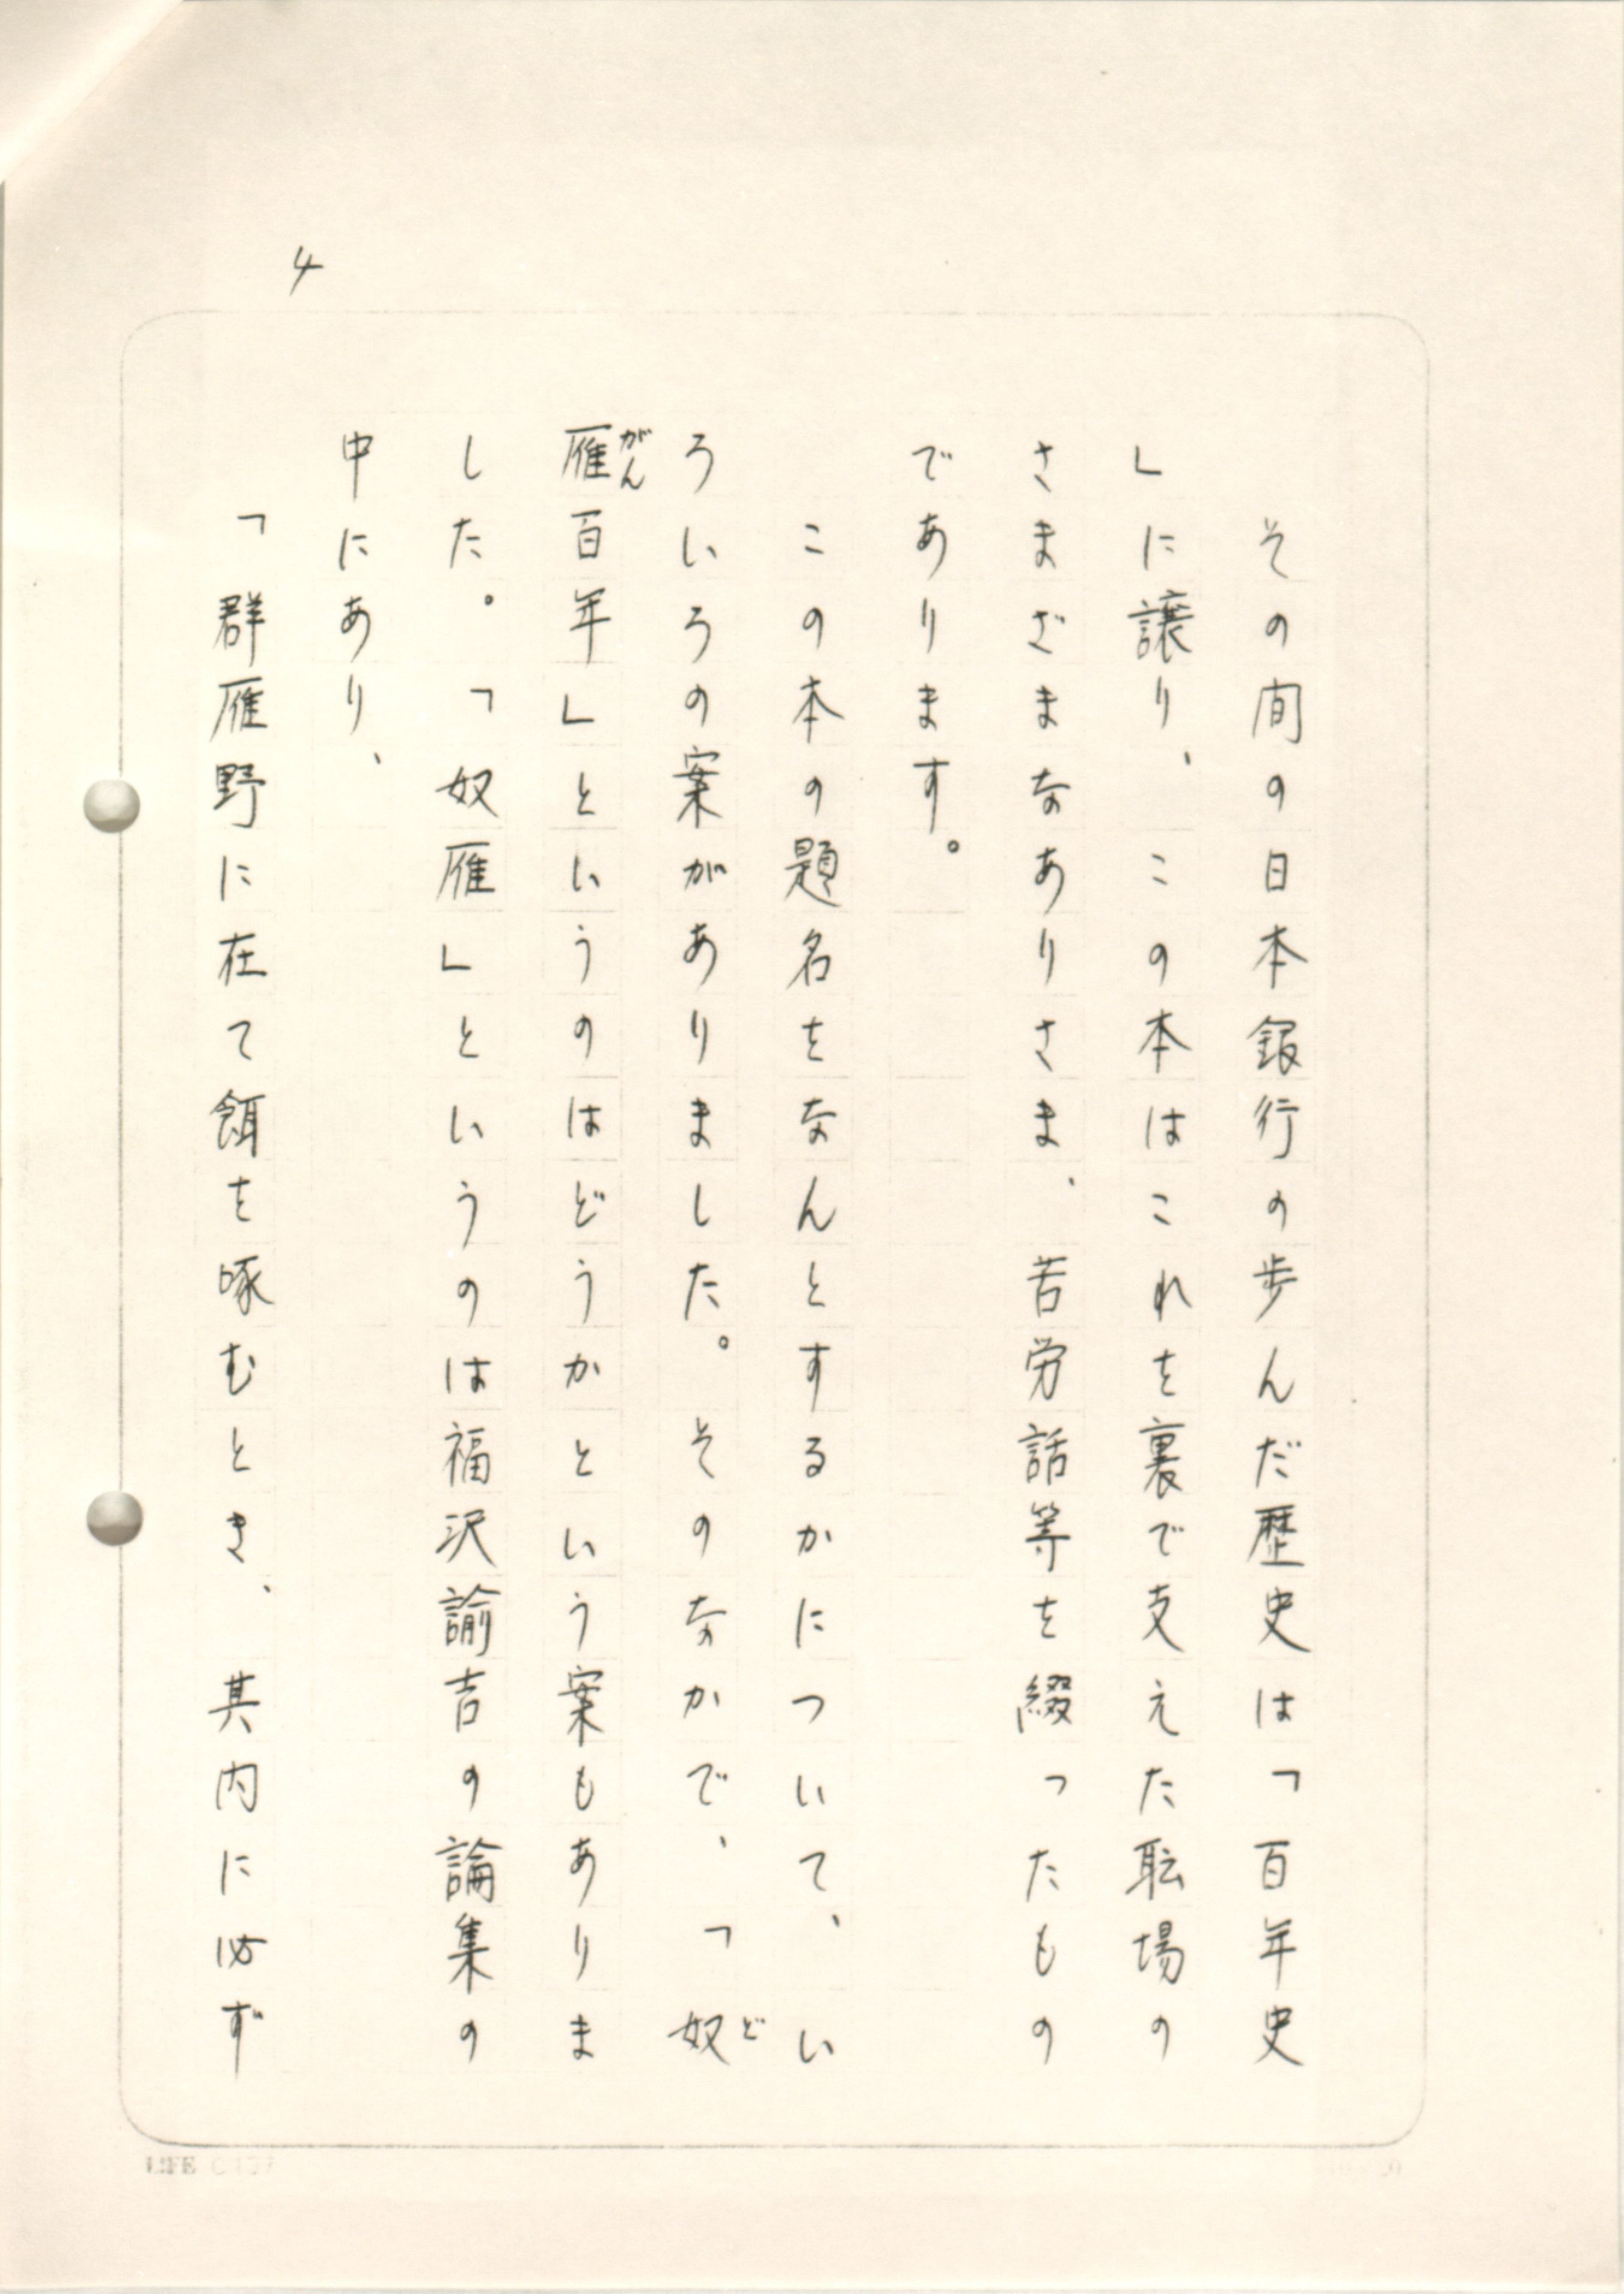 4
その間の日本銀行の歩んだ歴史は「百年史
」に譲り、この本はこれを裏で支えた職場の
さまざまなありさま、苦労話等を綴ったもの
であります。
この本の題名をなんとするかについて、い
ろいろの案がありました。そのなかで、「奴
ど
雁百年」というのはどうかという案もありま
がん
した。「奴雁」というのは福沢諭吉の論集の
中にあり、
「群雁野に在て餌を啄むとき、其内に必ず
LIFE